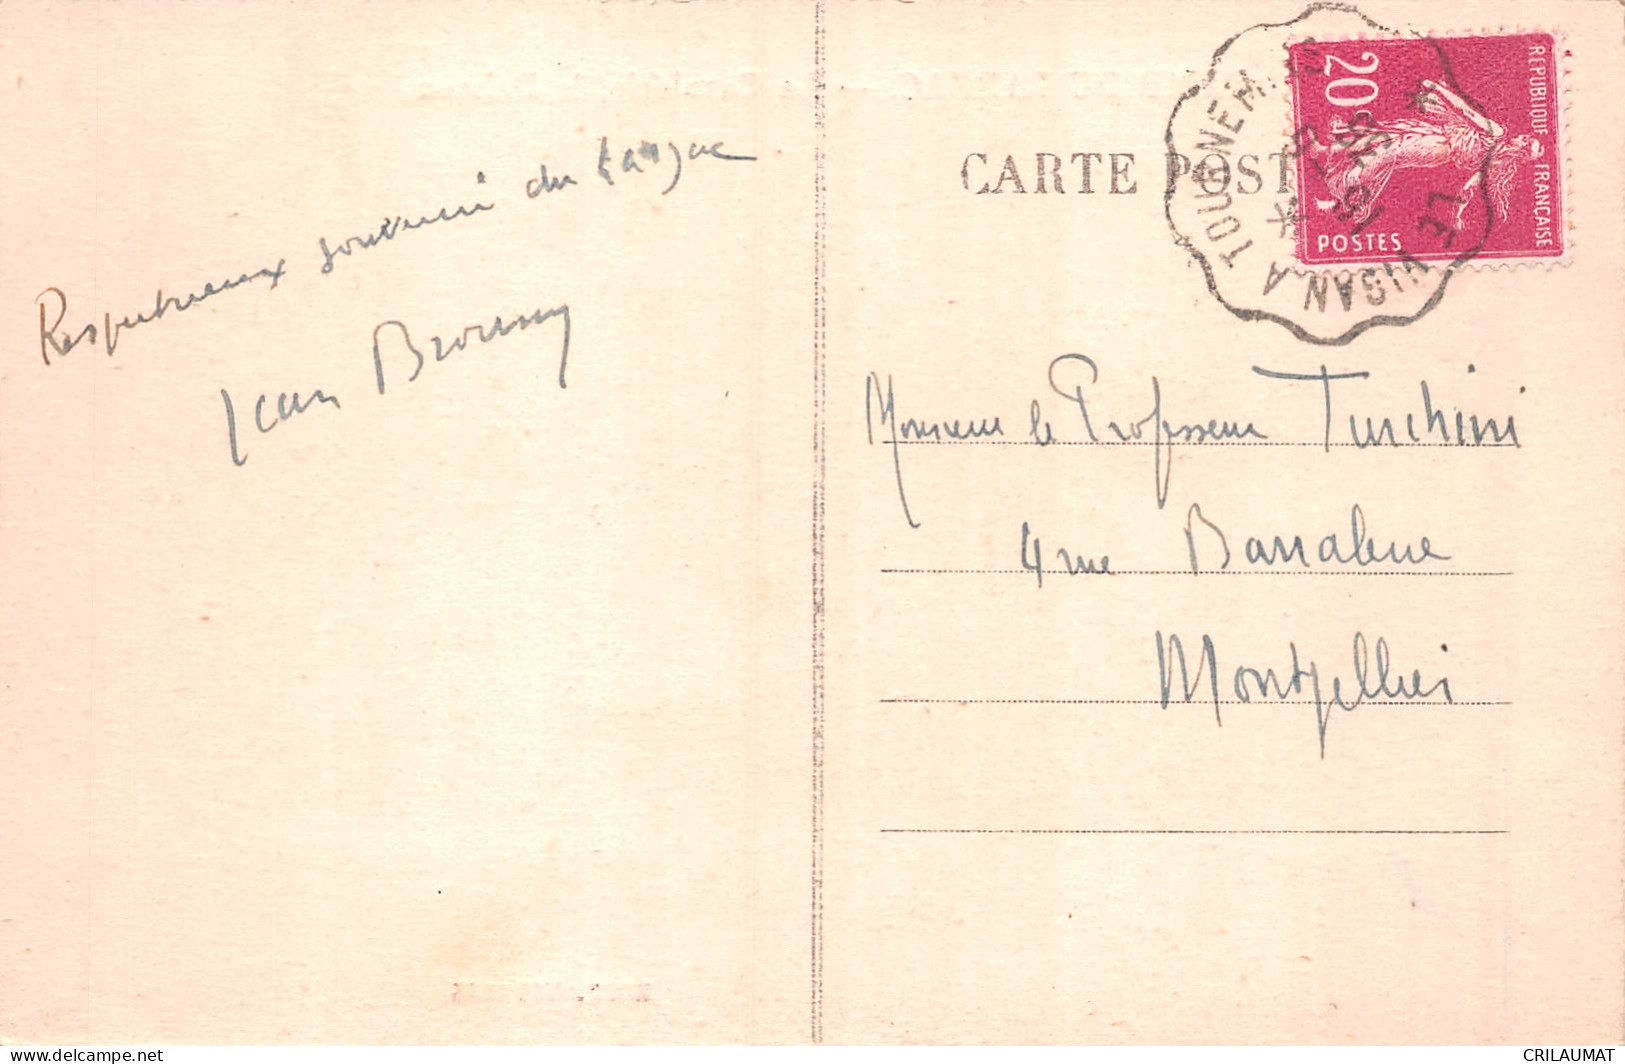 CARTE POST
RÉPUBLIQUE FRANÇAISE
20c
POSTES
LE VIGAN A TOURNEM
Respectueux souvenir du Larzac
Jean
Monsieur le Professeur Turchini
4 rue Barralerie
Montpellier
delcampe.net
CRILAUMAT